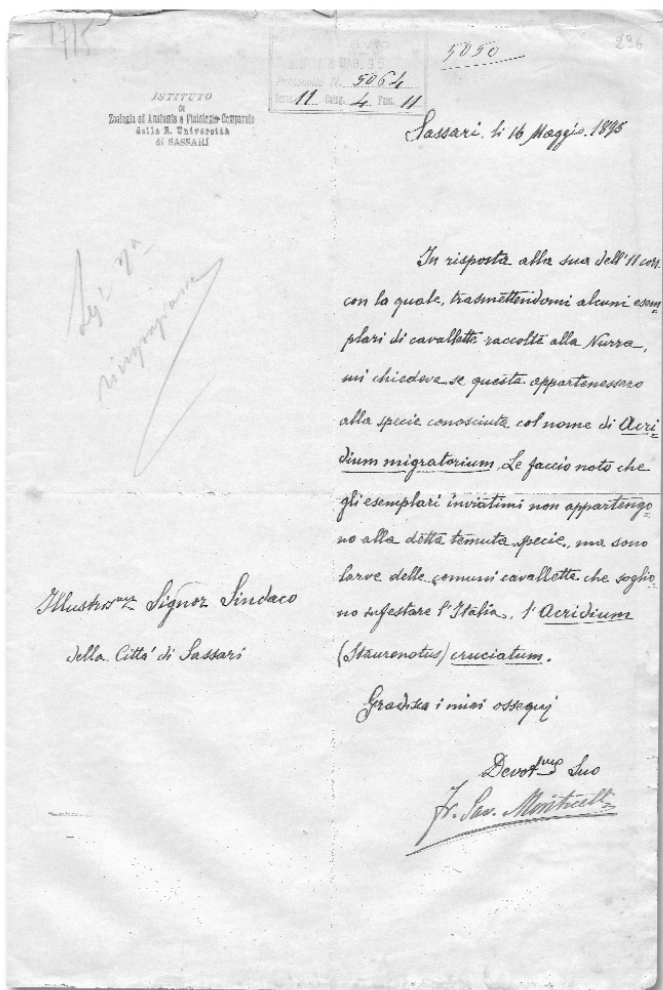 1715
296
5050
Protocollo N. 5064
11 Categ. 4 Fasc. 11
ISTITUTO
DI
Zoologia ed Anatomia e Fisiologia Comparate
della R. Università
di SASSARI
Sassari, li 16 Maggio, 1895
In risposta alla sua dell'11 corr.
con la quale, trasmettendomi alcuni esem-
plari di cavallette raccolte alla Nurra,
mi chiedeva se queste appartenessero
alla specie conosciuta col nome di Acri
dium migratorium, Le faccio noto che
gli esemplari inviatimi non appartengo-
no alla detta temuta specie, ma sono
larve delle comuni cavallette che soglio-
no infestare l'Italia, l'Acridium
(Stauronotus) cruciatum.
Gradisca i miei ossequj
Devotmo Suo
Fr. Sav. Monticelli
Illustrmo Signor Sindaco
della Città di Sassari